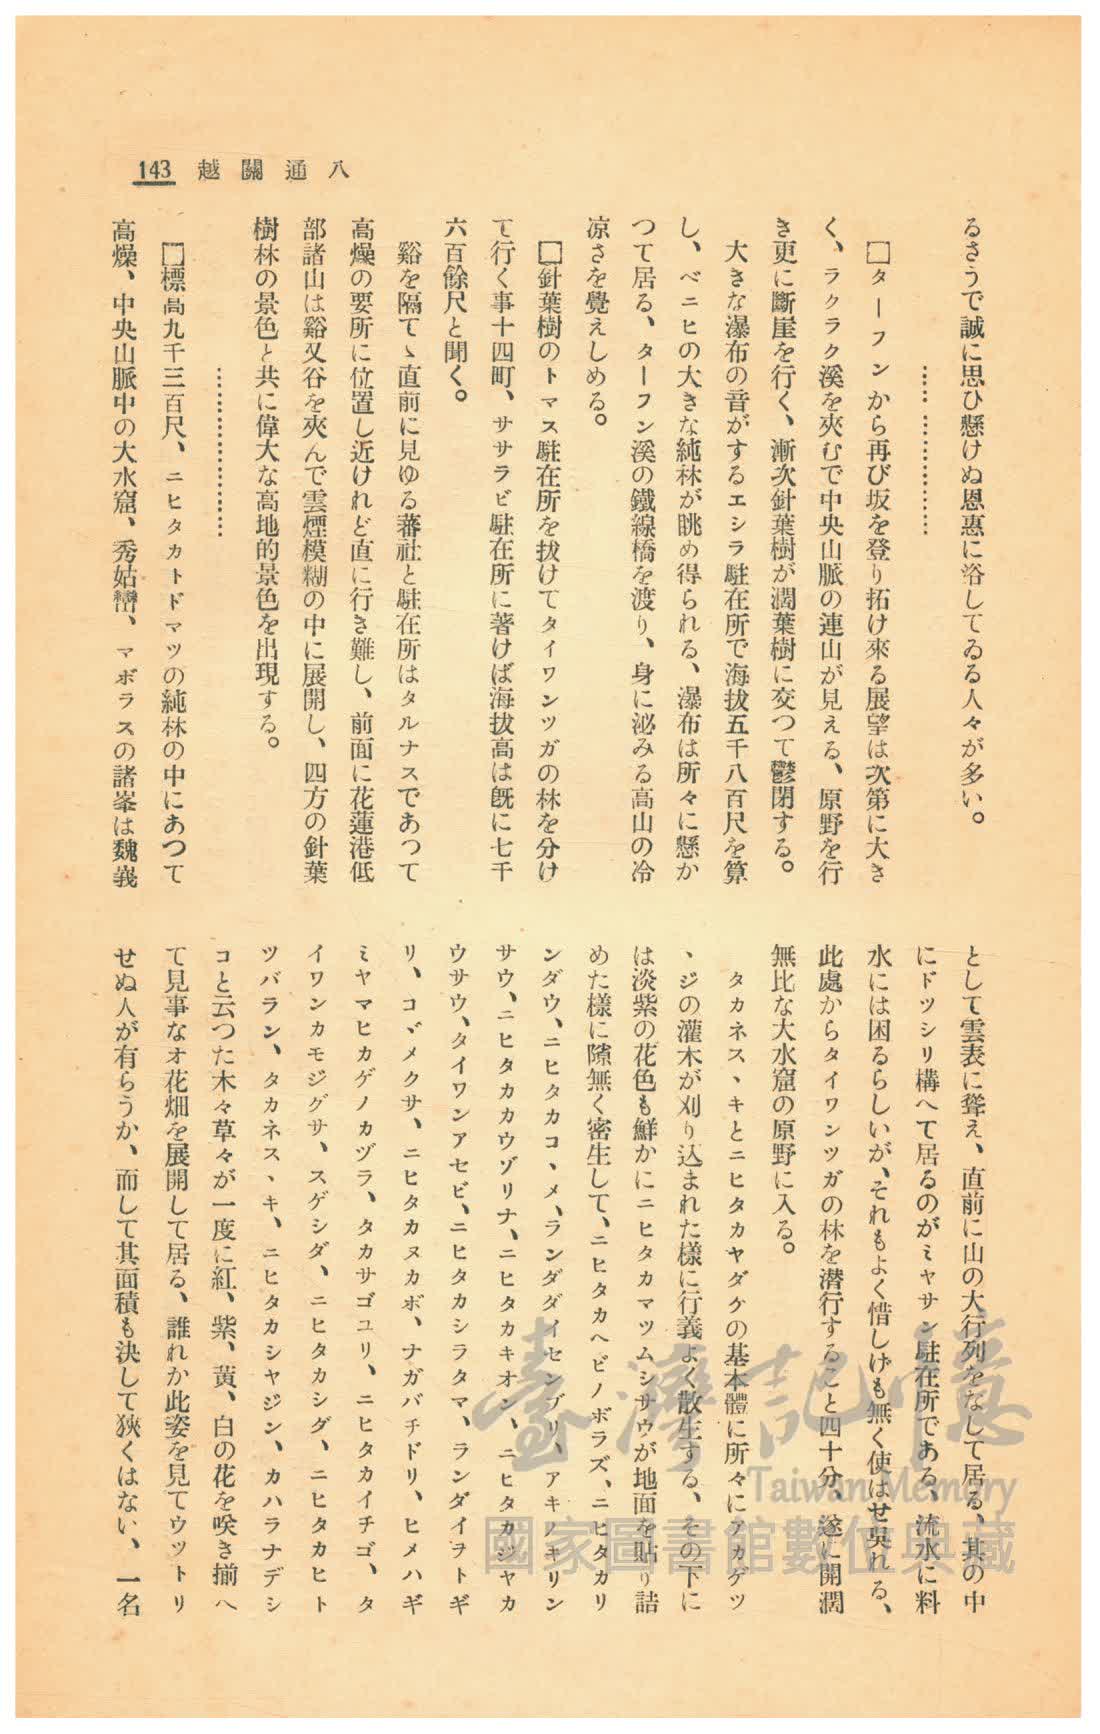 八通關越 143
るさうで誠に思ひ懸けぬ恩惠に浴してゐる人々が多い。
……………………
□ターフンから再び坂を登り拓け來る展望は次第に大き
く、ラクラク溪を夾むで中央山脈の連山が見える、原野を行
き更に斷崖を行く、漸次針葉樹が濶葉樹に交つて鬱閉する。
大きな瀑布の音がするエシラ駐在所で海拔五千八百尺を算
し、ベニヒの大きな純林が眺め得られる、瀑布は所々に懸か
つて居る、ターフン溪の鐵線橋を渡り、身に泌みる高山の冷
凉さを覺えしめる。
□針葉樹のトマス駐在所を拔けてタイワンツガの林を分け
て行く事十四町、ササラビ駐在所に著けば海拔高は既に七千
六百餘尺と聞く。
谿を隔てゝ直前に見ゆる蕃社と駐在所はタルナスであつて
高燥の要所に位置し近けれど直に行き難し、前面に花蓮港低
部諸山は谿又谷を夾んで雲煙模糊の中に展開し、四方の針葉
樹林の景色と共に偉大な高地的景色を出現する。
……………………
□標高九千三百尺、ニヒタカトドマツの純林の中にあつて
高燥、中央山脈中の大水窟、秀姑巒、マボラスの諸峯は魏義
として雲表に聳え、直前に山の大行列をなして居る、其の中
にドツシリ構へて居るのがミヤサン駐在所である、流水に料
水には困るらしいが、それもよく惜しげも無く使はせ吳れる、
此處からタイワンツガの林を潜行すること四十分、遂に開濶
無比な大水窟の原野に入る。
タカネスヽキとニヒタカヤダケの基本體に所々にアカゲツ
ヽジの灌木が刈り込まれた樣に行義よく散生する、その下に
は淡紫の花色も鮮かにニヒタカマツムシサウが地面を貼り詰
めた樣に隙無く密生して、ニヒタカヘビノボラズ、ニヒタカリ
ンダウ、ニヒタカコヽメ、ランダダイセンブリ、アキノキリン
サウ、ニヒタカカウゾリナ、ニヒタカキオン、ニヒタカジヤカ
ウサウ、タイワンアセビ、ニヒタカシラタマ、ランダイヲトギ
リ、コヾメクサ、ニヒタカヌカボ、ナガバチドリ、ヒメハギ
ミヤマヒカゲノカヅラ、タカサゴユリ、ニヒタカイチゴ、タ
イワンカモジグサ、スゲシダ、ニヒタカシダ、ニヒタカヒト
ツバラン、タカネスヽキ、ニヒタカシヤジン、カハラナデシ
コと云つた木々草々が一度に紅、紫、黃、白の花を咲き揃へ
て見事なオ花畑を展開して居る、誰れか此姿を見てウツトリ
せぬ人が有らうか、而して其面積も決して狹くはない、一名
臺灣記憶
Taiwan Memory
國家圖書館數位典藏